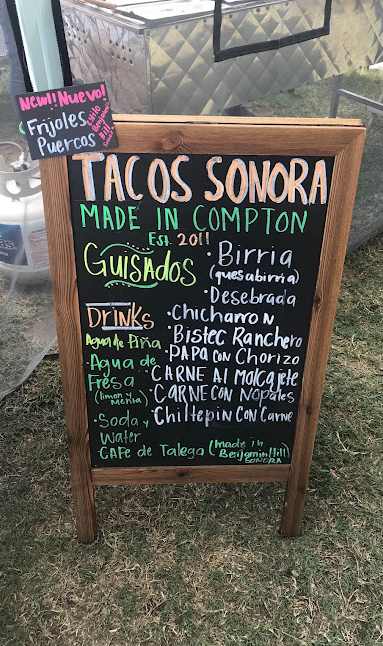 New!! Nuevo!
Frijoles
Puercos
Estilo
Benjamin
Hill
Sonora
TACOS SONORA
MADE IN COMPTON
EST. 2011
GUISADOS
· Birria
(quesabirria)
· Desebrada
· Chicharron
· Bistec Ranchero
· PAPA CON Chorizo
· CARNE Al MOlCAjete
· CARNE CON NOpAles
· Chiltepin CON Carne
DRiNKs
Agua de Piña
· Agua de
Fresa
(limon y
Menta)
· Soda y
Water
· CAFe de Talega (made in
Benjamin Hill)
SONORA